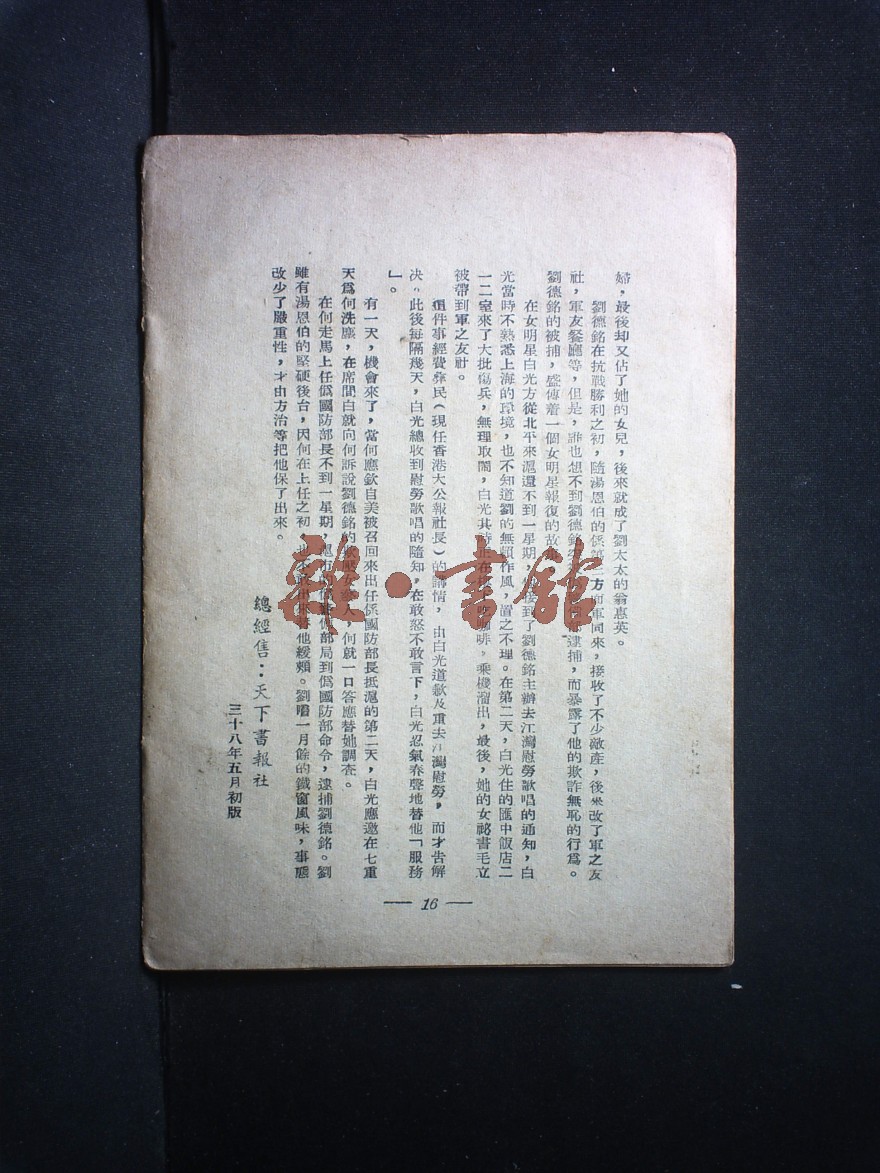 婦，最後却又佔了她的女兒，後來就成了劉太太的翁惠英。
劉德銘在抗戰勝利之初，隨湯恩伯的係第三方面軍同來，接收了不少敵產，後來改了軍之友
社，軍友餐廳等，但是，誰也想不到劉德銘 逮捕，而暴露了他的欺詐無恥的行爲。
劉德銘的被捕，盛傳着一個女明星報復的故事。
在女明星白光方從北平來滬還不到一星期， 接到了劉德銘主辦去江灣慰勞歌唱的通知，白
光當時不熟悉上海的環境，也不知道劉的無賴作風，置之不理。在第二天，白光住的匯中飯店二
一二室來了大批傷兵，無理取鬧，白光其時正在 咖啡，乘機溜出，最後，她的女祕書毛立
被帶到軍之友社。
這件事經費彝民（現任香港大公報社長）的講情，由白光道歉及重去江灣慰勞，而才告解
决。此後每隔幾天，白光總收到慰勞歌唱的隨知，在敢怒不敢言下，白光忍氣吞聲地替他「服務
」。
有一天，機會來了，當何應欽自美被召回來出任係國防部長抵滬的第二天，白光應邀在七重
天爲何洗塵，在席間白就向何訴說劉德銘的欺壓女藝人，何就一口答應替她調查。
在何走馬上任僞國防部長不到一星期，滬市的 部局到僞國防部命令，逮捕劉德銘。劉
雖有湯恩伯的堅硬後台，因何在上任之初，也不敢出來替他緩頰。劉嚐一月餘的鐵窗風味，事態
改少了嚴重性，才由方治等把他保了出來。
總經售：天下書報社
三十八年五月初版
— 16 —
雜·書館